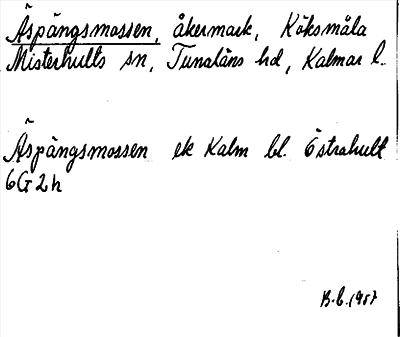 Äspängsmossen, åkermark, Köksmåla
Misterhults sn, Tunaläns hd, Kalmar l.
Äspängsmossen ek Kalm bl. Östrahult
6G2h
B.L. 1957